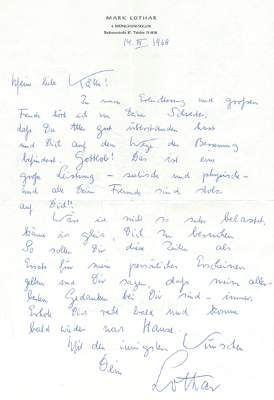 MARK LOTHAR
8 MÜNCHEN-SOLLN
14. IV 1968
Meine liebe Käthe!
Zu meiner Erleichterung und großen
Freude hört ich von Deiner Schwester,
daß Du Alles gut überstanden hast
und Dich auf dem Wege der Besserung
befindest. Gottlob! Das ist eine
große Leistung – seelisch und physisch –
und alle Deine Freunde sind stolz
auf Dich!!
Wäre ich nicht so sehr belastet,
käme ich gleich, Dich zu besuchen
So sollen Dir diese Zeilen als
Ersatz für mein persönliches Erscheinen
gelten und Dir sagen, daß meine aller-
besten Gedanken bei Dir sind – immer.
Erhole Dich recht bald und komme
bald wieder nach Hause.
Mit den innigsten Wünschen
Dein
Lothar